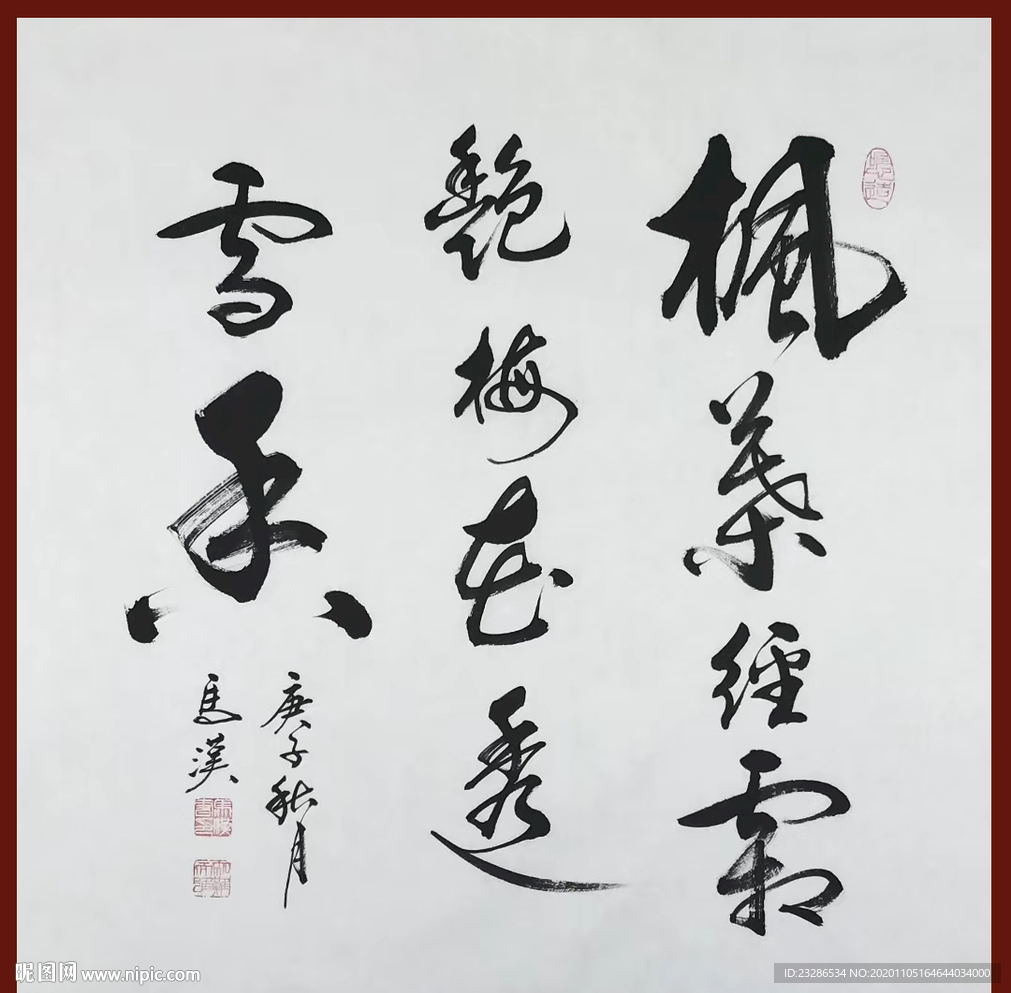 楓葉經霜
艷梅花透
雪香
庚子秋月
馬漢
昵图网 www.nipic.com
ID:23286534 NO:20201105164644034000